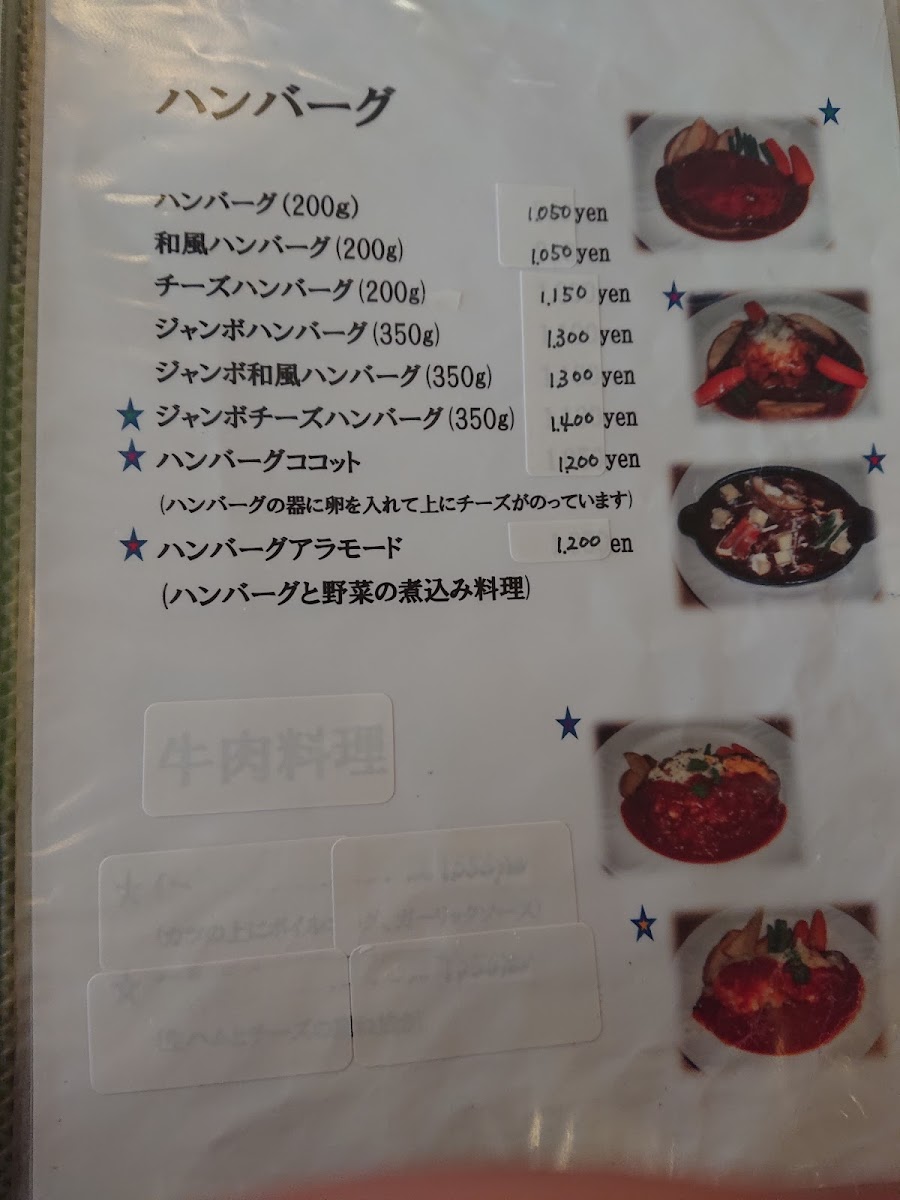 ハンバーグ
ハンバーグ(200g) 1,050yen
和風ハンバーグ(200g) 1,050yen
チーズハンバーグ(200g) 1,150 yen
ジャンボハンバーグ(350g) 1,300 yen
ジャンボ和風ハンバーグ(350g) 1,300 yen
★ジャンボチーズハンバーグ(350g) 1,400 yen
★ハンバーグココット 1,200 yen
(ハンバーグの器に卵を入れて上にチーズがのっています)
★ハンバーグアラモード 1,200 en
(ハンバーグと野菜の煮込み料理)
牛肉料理